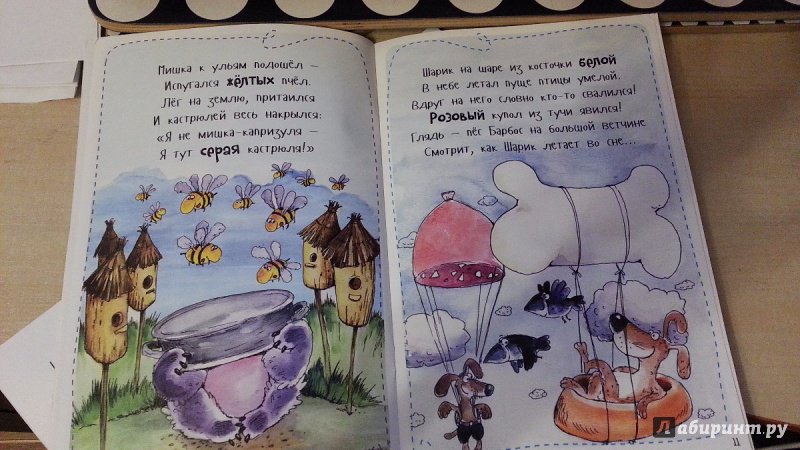 Мишка к ульям подошёл –
Испугался жёлтых пчёл.
Лёг на землю, притаился
И кастрюлей весь накрылся:
«Я не мишка-капризуля –
Я тут серая кастрюля!»
Шарик на шаре из косточки белой
В небе летал пуще птицы умелой.
Вдруг на него словно кто-то свалился!
Розовый купол из тучи явился!
Глядь – пёс Барбос на большой ветчине
Смотрит, как Шарик летает во сне...
11
Лабиринт.ру